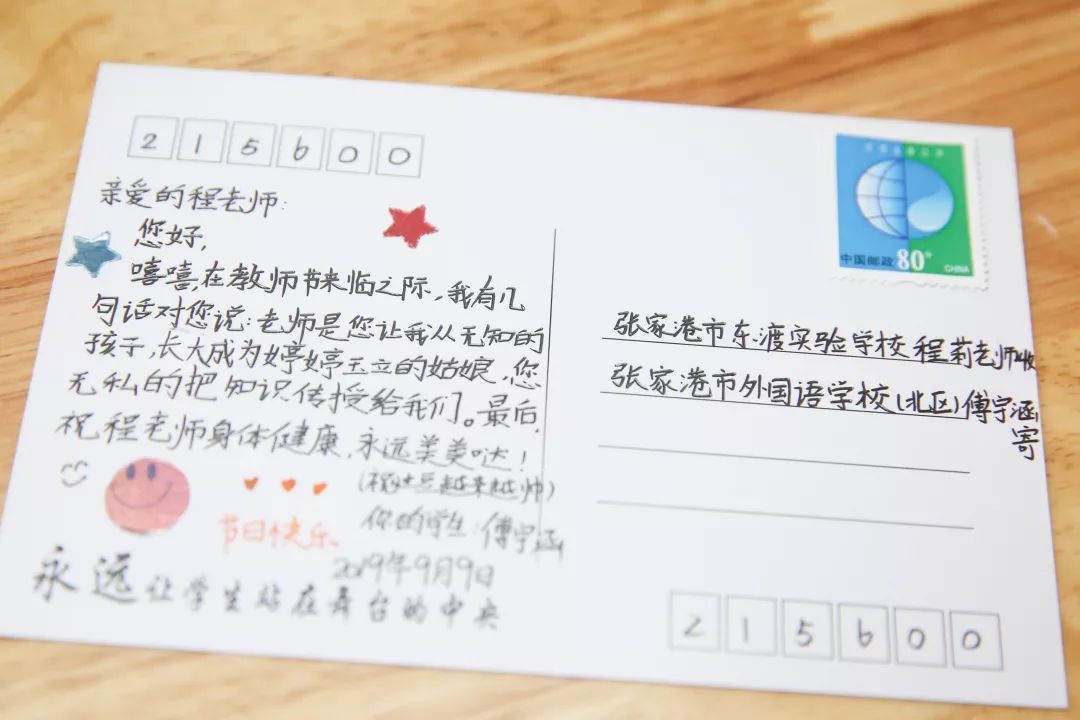 215600
亲爱的程老师:
您好,
嘻嘻,在教师节来临之际,我有几
句话对您说:老师是您让我从无知的
孩子,长大成为婷婷玉立的姑娘,您
无私的把知识传授给我们。最后,
祝程老师身体健康,永远美美哒!
越来越帅)
你的学生:傅宇涵
2019年9月9日
节日快乐
永远让学生站在舞台的中央
中国邮政 80分
CHINA
张家港市东渡实验学校程莉老师收
张家港市外国语学校(北区)傅宇涵
寄
215600